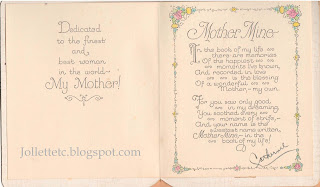 Dedicated
to the finest
and
best woman
in the world--
My Mother!
Jollettetc.blogspot.com
Mother Mine
In the book of my life
there are memories
Of the happiest
moments I've known,
And recorded in love
is the blessing
Of a wonderful
Mother, my own.
For you saw only good
in my dreaming,
You soothed every
moment of strife,
And your name is the
sweetest name written,
Mother Mine, in the
book of my life!
Catherine